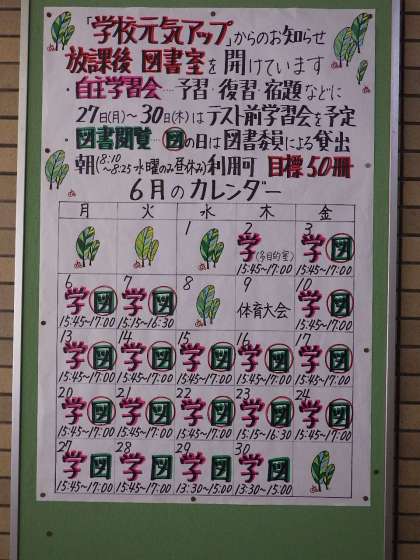 「学校元気アップ」からのお知らせ
放課後 図書室を開けています
・自主学習会…予習・復習・宿題などに
27日(月)~30日(木)はテスト前学習会を予定
・図書閲覧…図の日は図書委員による貸出
朝(8:10~8:25 水曜のみ昼休み)利用可 目標50冊
6月のカレンダー
月 火 水 木 金
1 2 3
学(多目的室) 学図
15:45~17:00 15:45~17:00
6 7 8 9 10
学図 学図 体育大会 学図
15:45~17:00 15:15~16:30 15:45~17:00
13 14 15 16 17
学図 学図 学図 学図 学図
15:45~17:00 15:45~17:00 15:45~17:00 15:45~17:00 15:45~17:00
20 21 22 23 24
学図 学図 学図 学図 学図
15:45~17:00 15:45~17:00 15:45~17:00 15:15~16:30 15:45~17:00
27 28 29 30
学図 学図 学図 学図
15:45~17:00 15:45~17:00 13:30~15:00 13:30~15:00